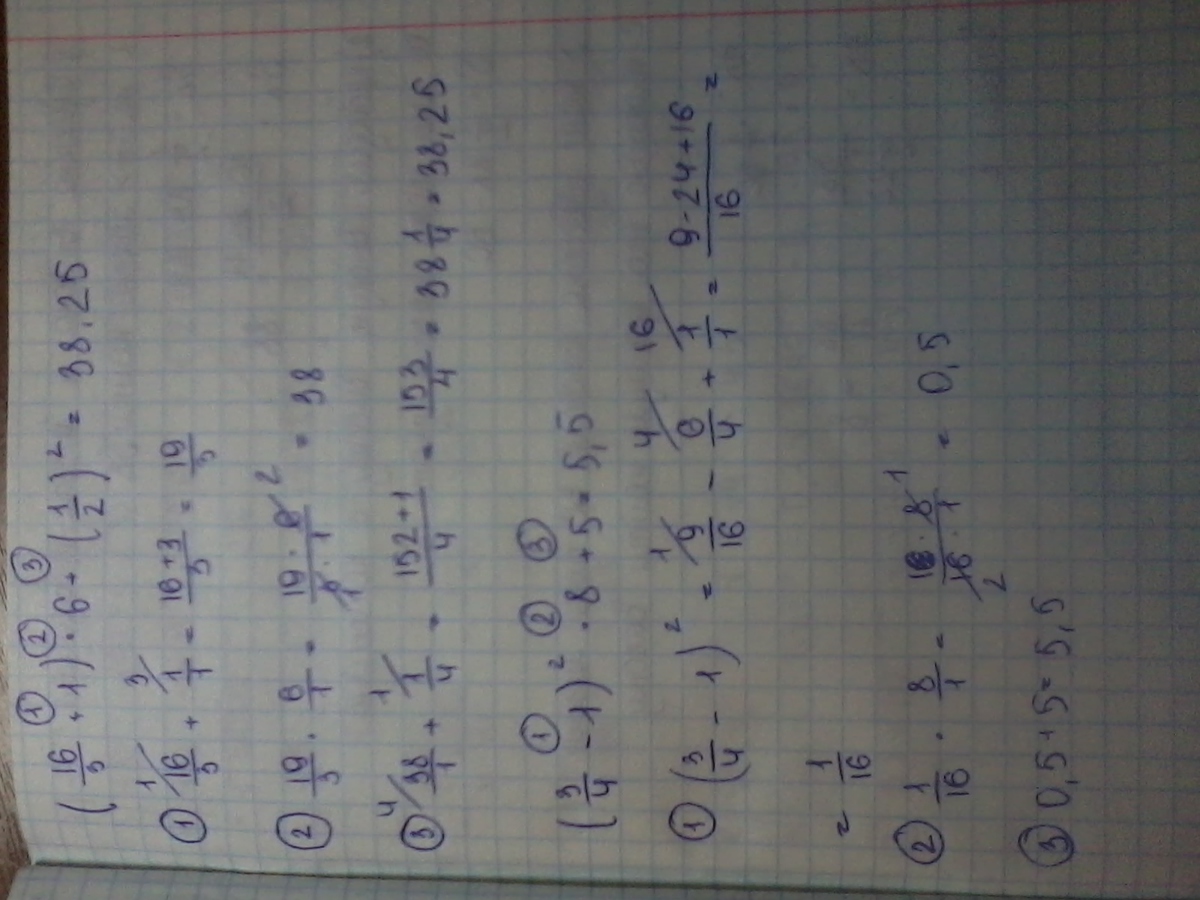 (16/3 + 1) · 6 + (1/2)² = 38,25
① 16/3 + 1/1 = 16+3/3 = 19/3
② 19/3 · 6/1 = 19·6/3·1 = 38
③ 38/1 + 1/4 = 152+1/4 = 153/4 = 38 1/4 = 38,25
(3/4 - 1)² · 8 + 5 = 5,5
① (3/4 - 1)² = 9/16 - 6/4 + 1/1 = 9-24+16/16 =
= 1/16
② 1/16 · 8/1 = 1·8/16·1 = 0,5
③ 0,5 + 5 = 5,5